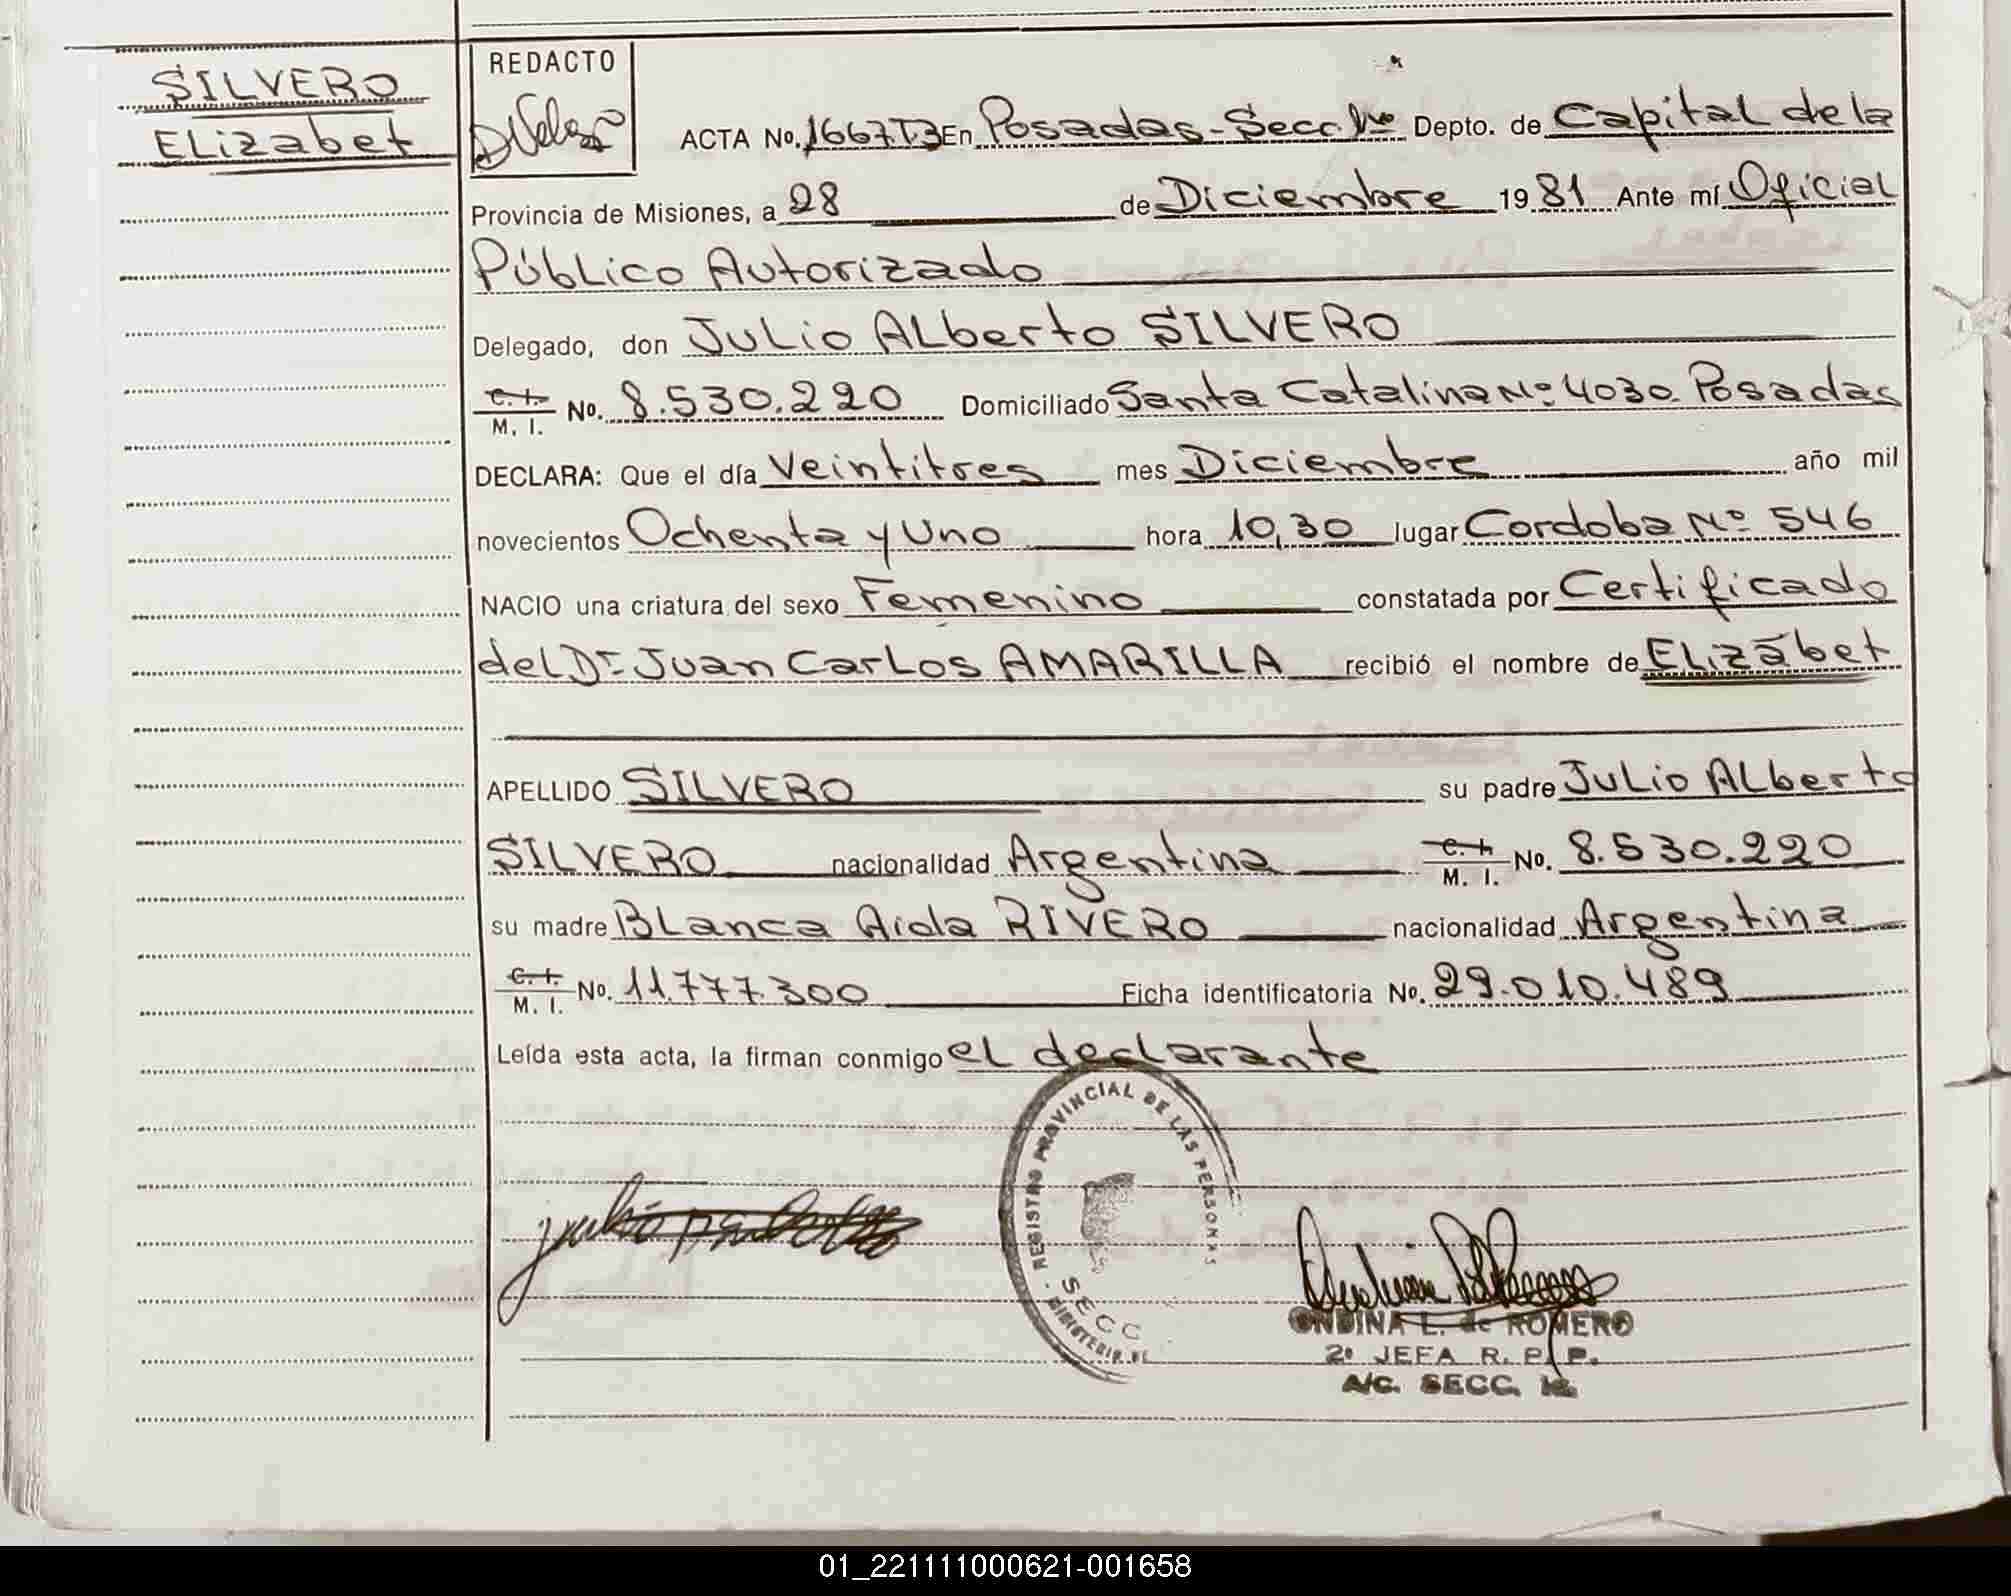 SILVERO
ELizabet
REDACTO
ACTA No. 1667T3 En Posadas-Secc 1ra Depto. de Capital de la
Provincia de Misiones, a 28 de Diciembre 1981 Ante mí Oficial
Público Autorizado
Delegado, don Julio Alberto SILVERO
C. I.
M. I. No. 8.530.220 Domiciliado Santa Catalina Nº 4030 Posadas
DECLARA: Que el día Veintitres mes Diciembre año mil
novecientos Ochenta y Uno hora 10,30 lugar Cordoba Nº 546
NACIO una criatura del sexo Femenino constatada por Certificado
del Dr. Juan Carlos AMARILLA recibió el nombre de Elizabet
APELLIDO SILVERO su padre Julio Alberto
SILVERO nacionalidad Argentina C. I.
M. I. No. 8.530.220
su madre Blanca Aida RIVERO nacionalidad Argentina
C. I.
M. I. No. 11.777.300 Ficha identificatoria No. 29.010.489
Leída esta acta, la firman conmigo el declarante
REGISTRO PROVINCIAL DE LAS PERSONAS
SECC
ONDINA L. de ROMERO
2º JEFA R. P. P.
A/C. SECC. 1ª
01_221111000621-001658